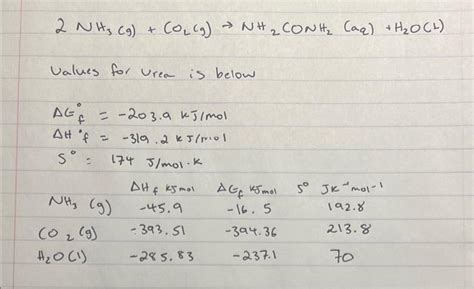 2 NH₃ (g) + CO₂ (g) → NH₂CONH₂ (aq) + H₂O (l)
Values for urea is below
ΔG°f = -203.9 kJ/mol
ΔH°f = -319.2 kJ/mol
S° = 174 J/mol·K
ΔHf kJmol ΔGf kJmol S° JK⁻¹mol⁻¹
NH₃ (g) -45.9 -16.5 192.8
CO₂ (g) -393.51 -394.36 213.8
H₂O (l) -285.83 -237.1 70